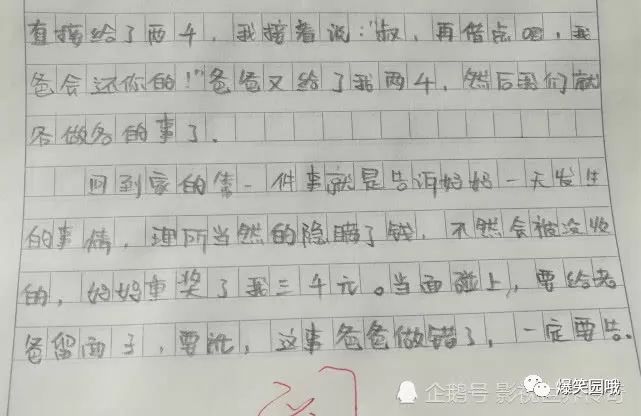 直接给了两千，我接着说："叔，再借点吧，我
爸会还你的！"爸爸又给了我两千，然后我们就
各做各的事了。
回到家的第一件事就是告诉妈妈一天发生
的事情，理所当然的隐瞒了钱，不然会被没收
的，妈妈重奖了我三千元。当面碰上，要给老
爸留面子，要说，这事爸爸做错了，一定要告。
企鹅号 影视
爆笑园哦